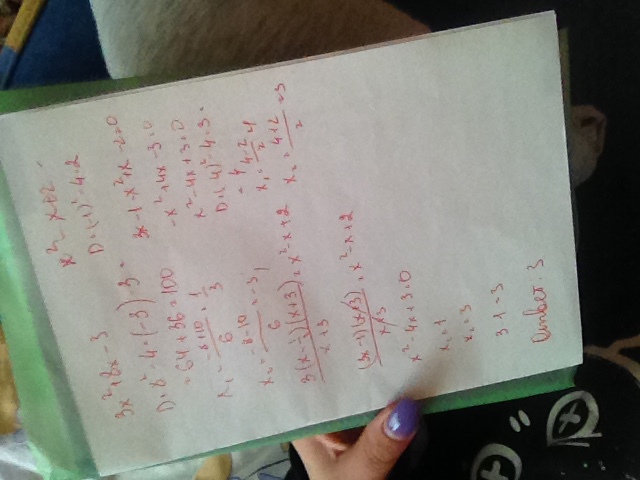 3x²+8x-3
D=8²-4·(-3)·3=
=64+36=100
x₁=(-8+10)/6=1/3
x₂=(-8-10)/6=-3
3(x-1/3)(x+3)/(x+3)=x²-x+2
(3x-1)(x+3)/(x+3)=x²-x+2
x²-4x+3=0
x₁=1
x₂=3
3·1=3
Ответ: 3
x²-x+2
D=(-1)²-4·2
3x-1-x²+x-2=0
-x²+4x-3=0
x²-4x+3=0
D=(-4)²-4·3=
=4
x₁=(4-2)/2=1
x₂=(4+2)/2=3